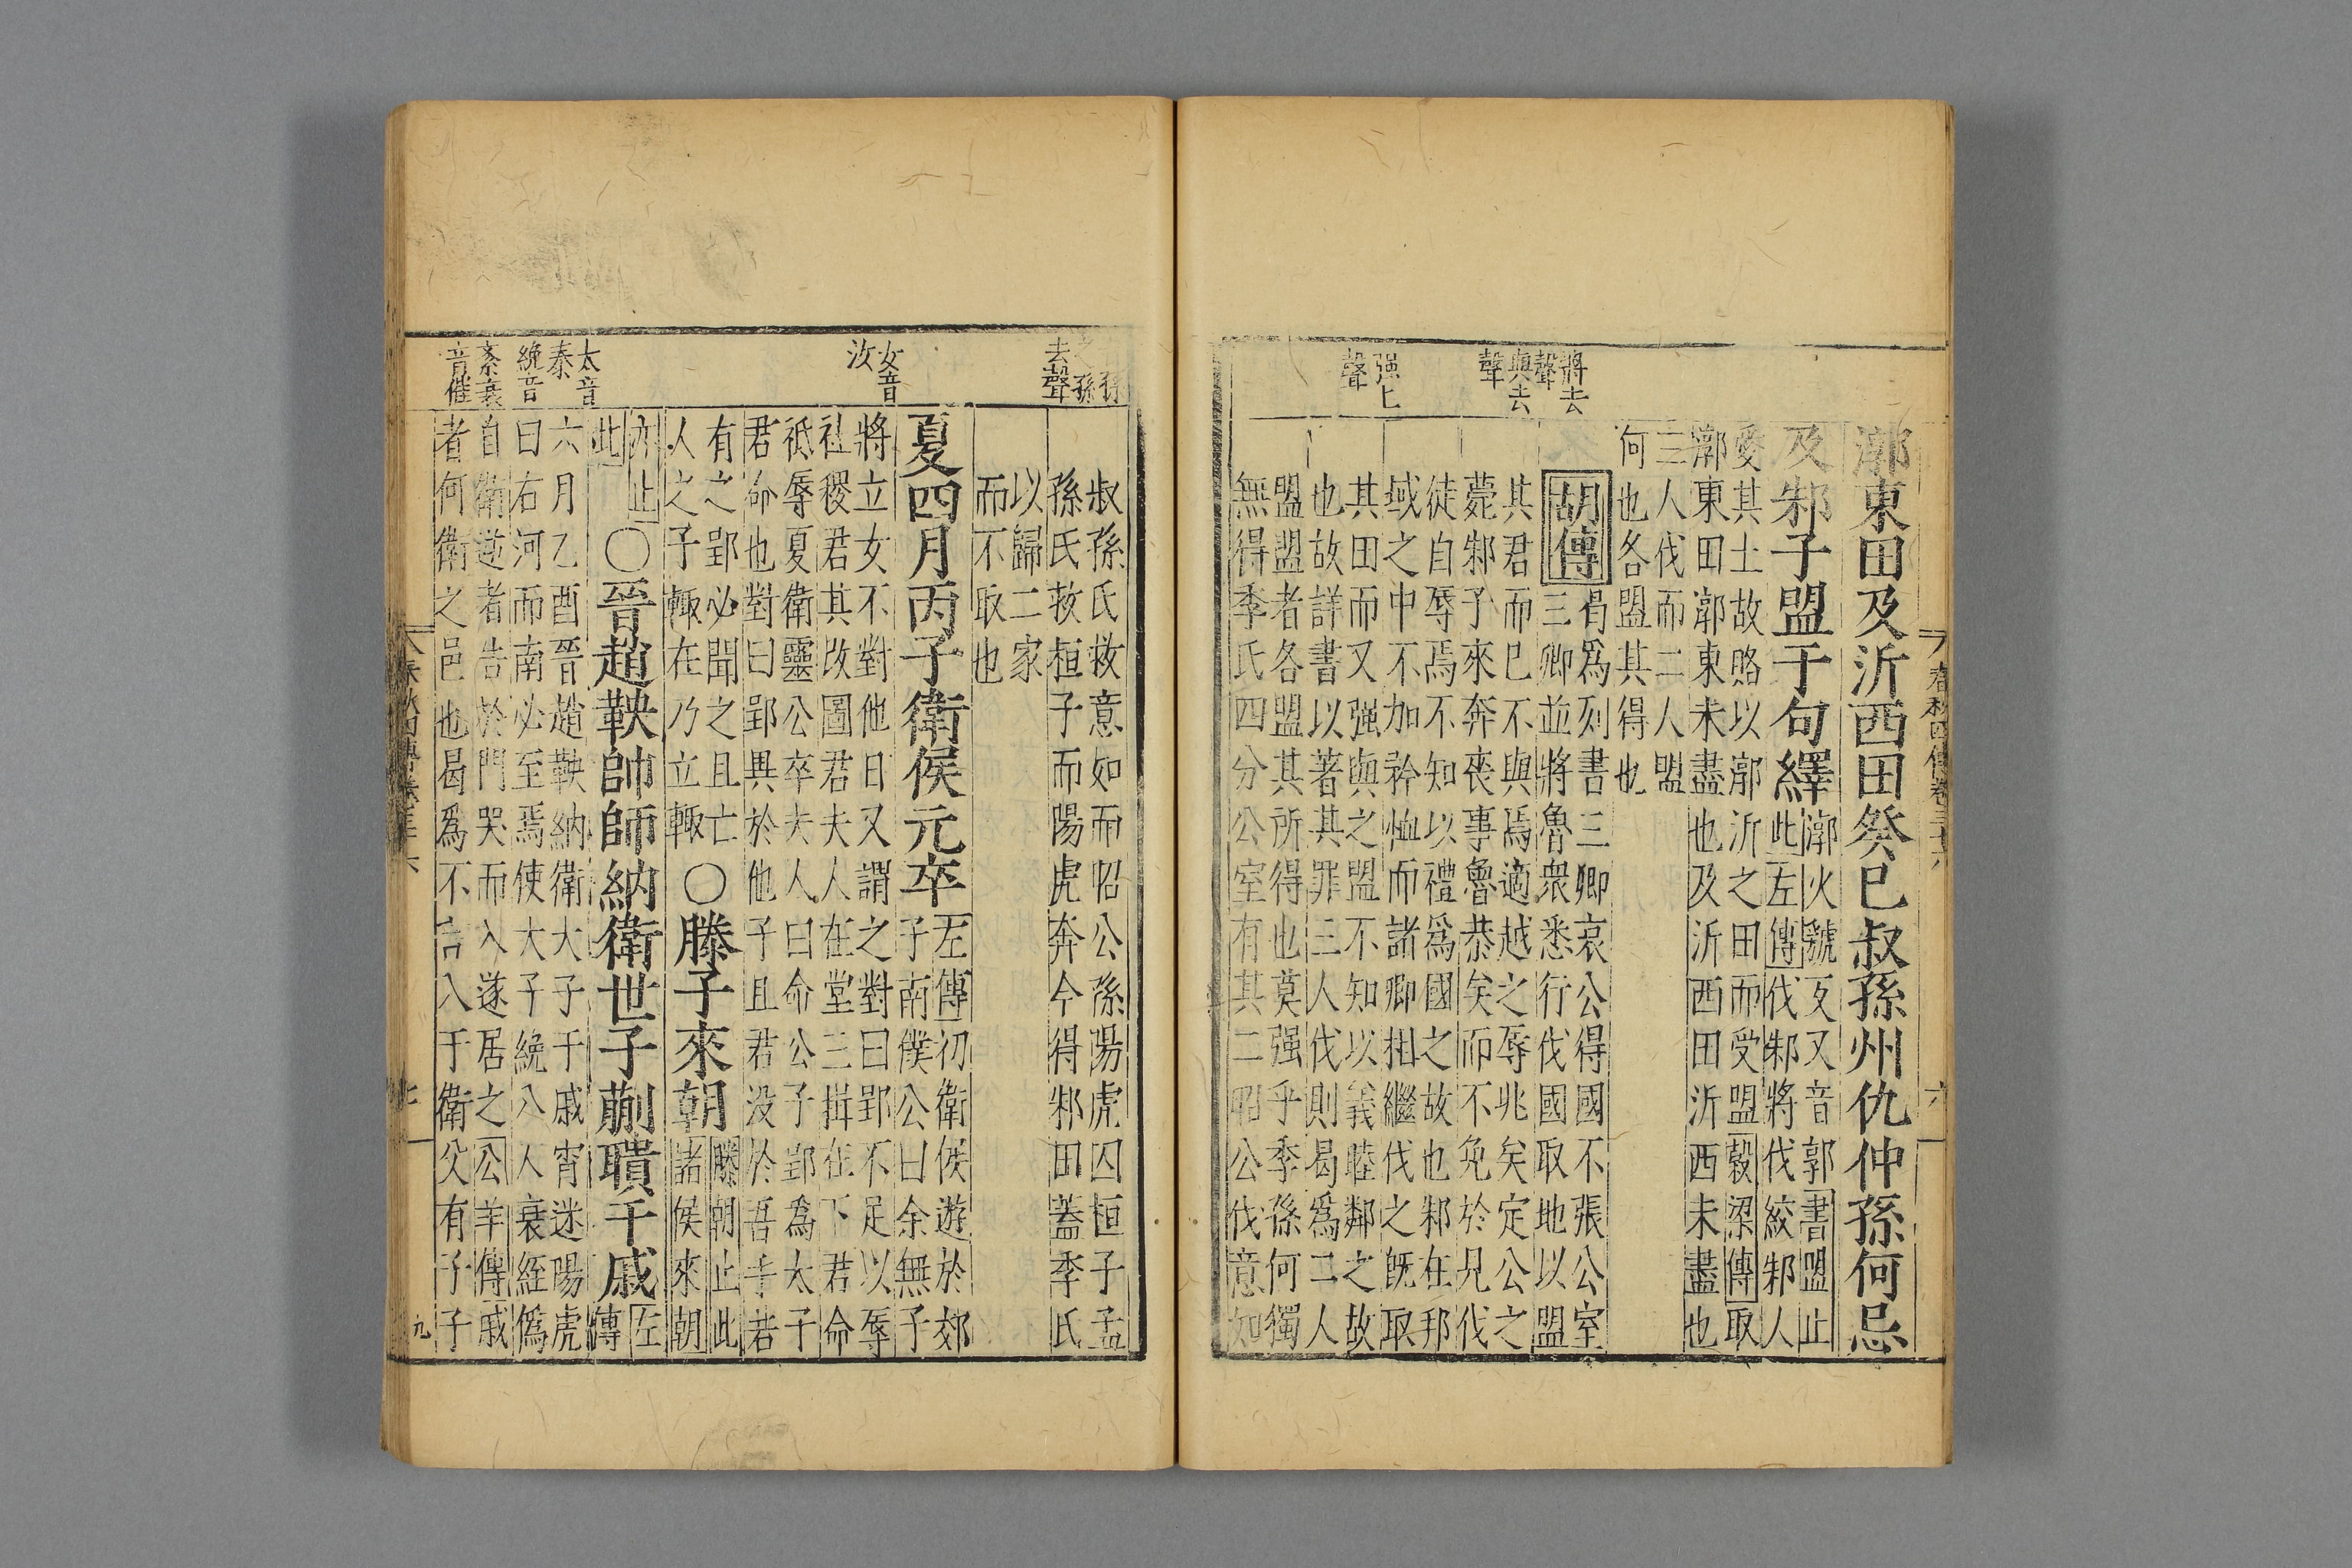 春秋四傳卷三十六
六
漷東田及沂西田癸巳叔孫州仇仲孫何忌
及邾子盟于句繹
漷火虢反又音郭書盟止
此左傳伐邾將伐絞邾人
愛其土故賂以漷沂之田而受盟穀梁傳取
漷東田漷東未盡也及沂西田沂西未盡也
三人伐而二人盟
何也各盟其得也
胡傳
曷爲列書三卿哀公得國不張公室
三卿並將魯衆悉行伐國取地以盟
其君而已不與焉適越之辱兆矣定公之
薨邾子來奔喪事魯恭矣而不免於見伐
徒自辱焉不知以禮爲國之故也邾在邦
域之中不加矜恤而諸卿相繼伐之旣取
其田而又强與之盟不知以義睦鄰之故
也故詳書以著其罪三人伐則曷爲二人
盟盟者各盟其所得也莫强乎季孫何獨
無得季氏四分公室有其二昭公伐意如
將去
聲
與去
聲
强上
聲
叔孫氏救意如而昭公孫陽虎囚桓子孟
孫氏救桓子而陽虎奔今得邾田蓋季氏
以歸二家
而不取也
夏四月丙子衛侯元卒
左傳初衛侯遊於郊
子南僕公曰余無子
將立女不對他日又謂之對曰郢不足以辱
社稷君其改圖君夫人在堂三揖在下君命
祗辱夏衛靈公卒夫人曰命公子郢爲太子
君命也對曰郢異於他子且君没於吾手若
有之郢必聞之且亡
人之子輒在乃立輒
〇滕子來朝
滕朝止此
諸侯來朝
亦止
此
〇晉趙鞅帥師納衛世子蒯聵于戚
左
傳
六月乙酉晉趙鞅納衛大子于戚宵迷陽虎
曰右河而南必至焉使大子絻八人衰絰僞
自衛逆者告於門哭而入遂居之公羊傳戚
者何衛之邑也曷爲不言入于衛父有子子
去聲
女音
汝
太音
泰
絻音
音催
九